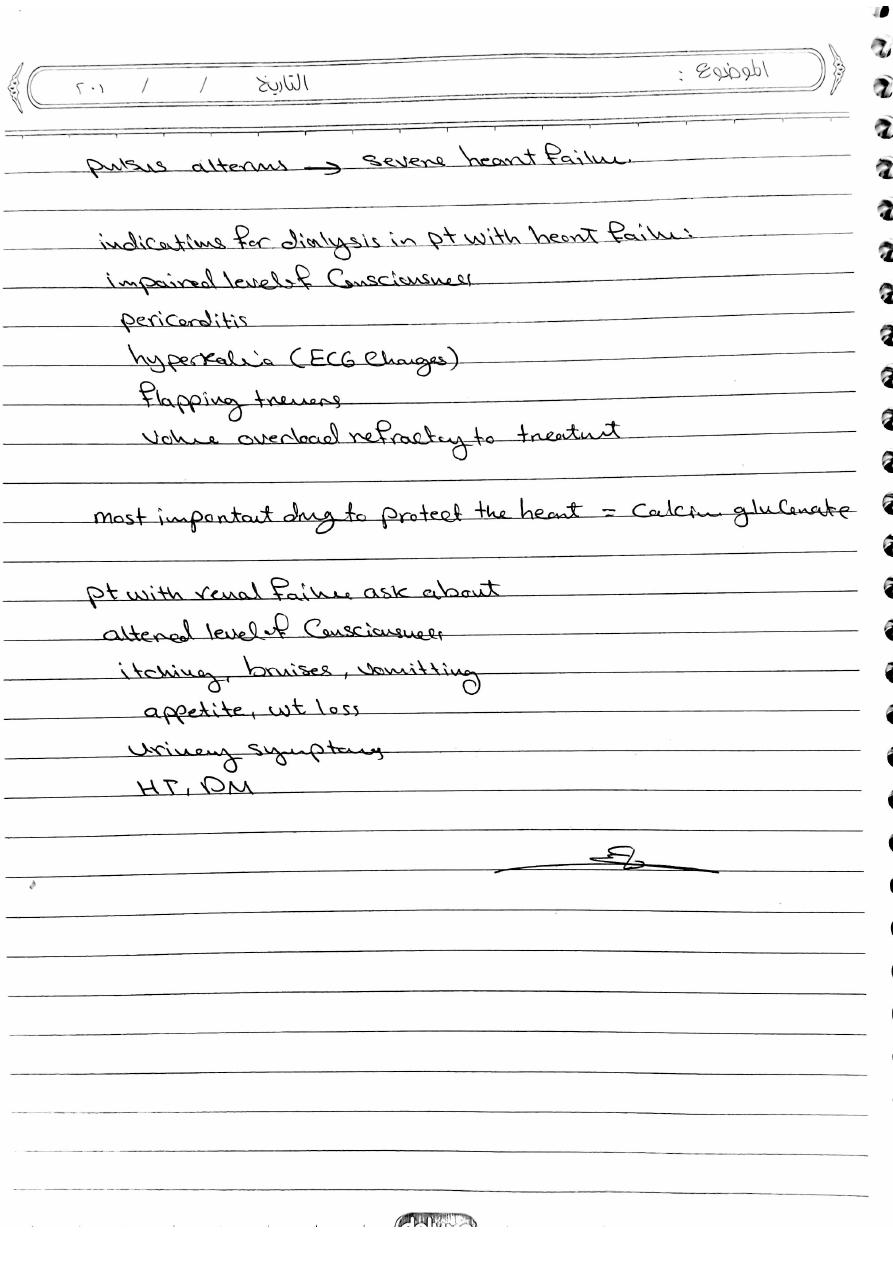 الموضوع :
التاريخ / / ٢٠١
pulsus alterns → severe heart failure.
indications for dialysis in pt with heart failure:
impaired level of Consciousness
pericarditis
hyperkalia (ECG Changes)
flapping tremers
volume overload refractey to treatment
most important drug to protect the heart = Calcium gluconate
pt with renal failure ask about
altered level of Consciousness
itching, bruises, vomitting
appetite, wt loss
urinery symptoms
HT, DM